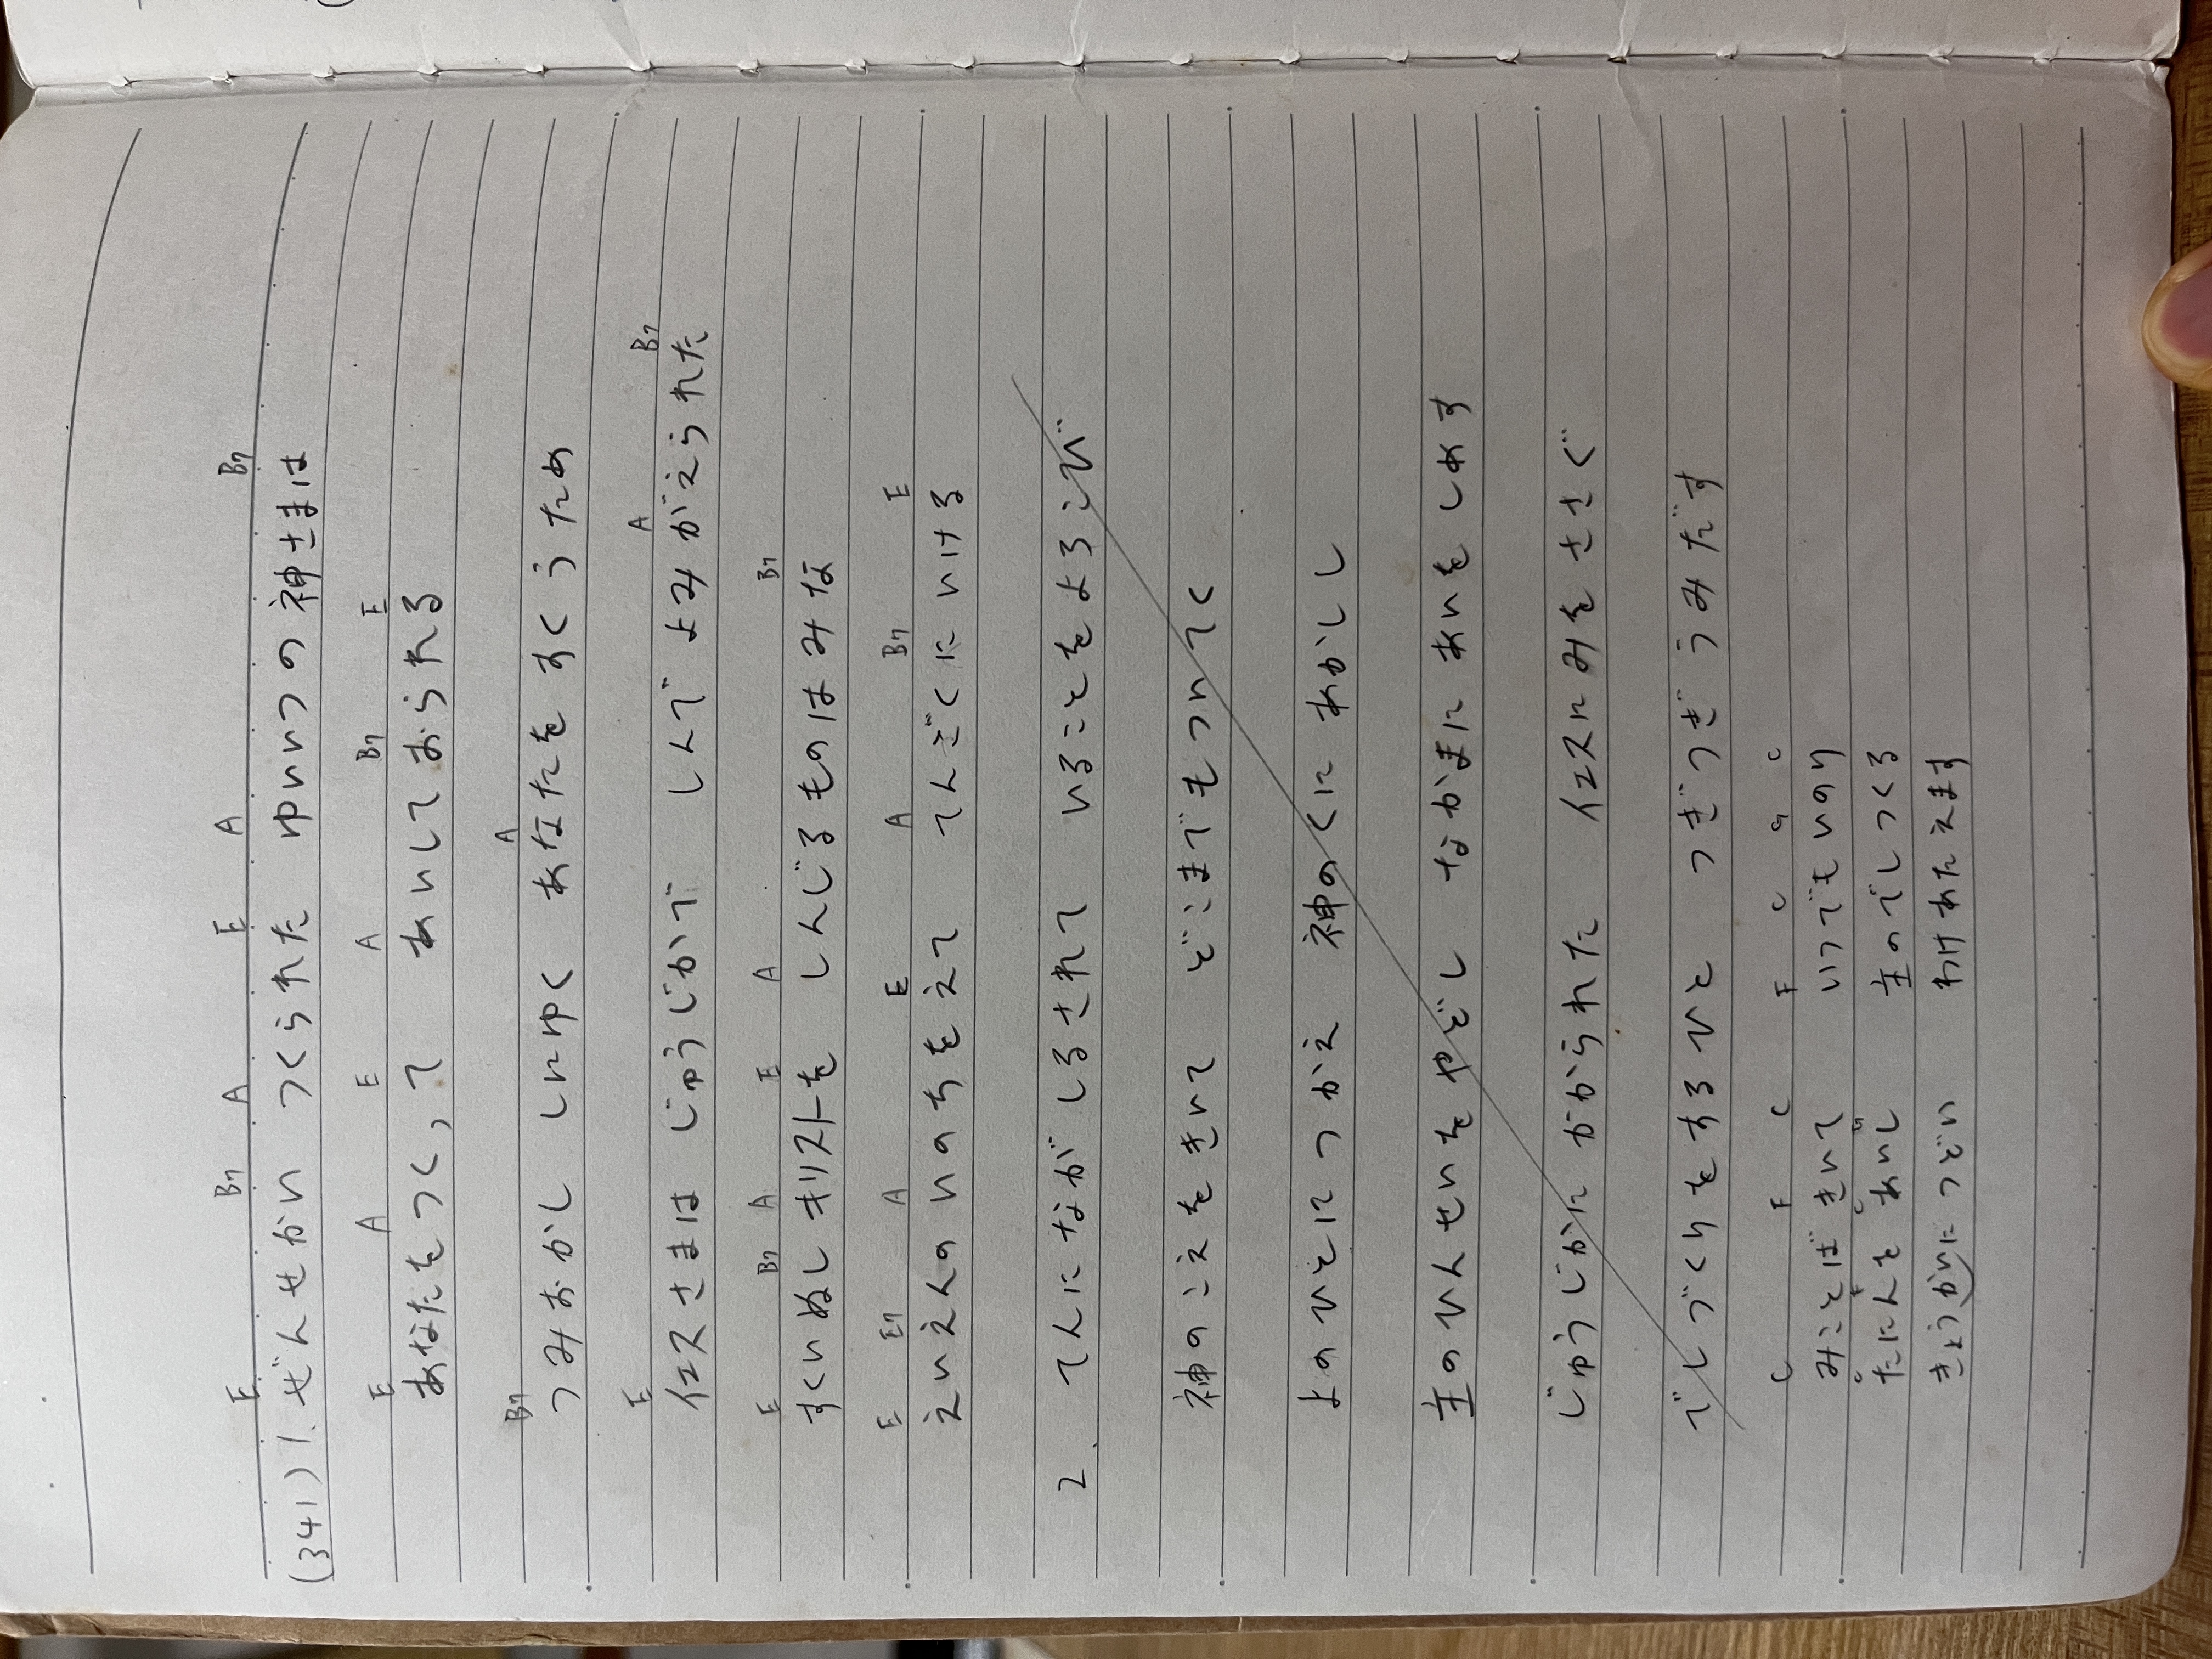 E B7 A E A B7
(341) 1. ぜんせかい つくられた ゆいいつの神さまは
E A E A B7 E
あなたをつくって あいしておられる
B7 A
つみおかし しにゆく あなたをすくうため
E A B7
イエスさまは じゅうじかで しんで よみがえられた
E B7 A E A B7
すくいぬしキリストを しんじるものはみな
E E7 A E A B7 E
えいえんのいのちをえて てんごくにいける
2. てんにながしるされて いることをよろこび
神のこえをきいて どこまでもついてく
よのひとにつかえ 神のくにあかしし
主のひんせいをやどし なかまにあいをしめす
じゅうじかにかかられた イエスにみをささぐ
でしづくりをするひと つぎつぎうみだす
C F C F C G C
みことばきいて いつでもいのり
たにんをあいし 主のでしつくる
きょうかいにつどい わけあたえます